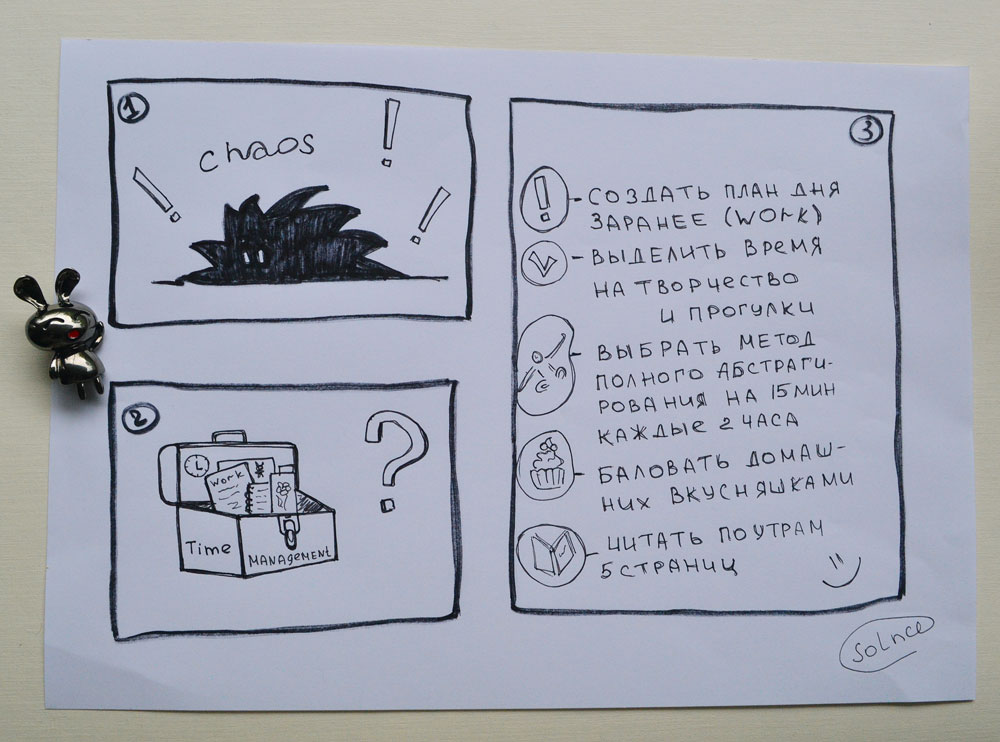 1
chaos
! ! !
2
?
Work
Time
MANAGemENT
3
! - СОЗДАТЬ ПЛАН ДНЯ
ЗАРАНЕЕ (WOrK)
- ВЫДЕЛИТЬ ВРЕМЯ
НА ТВОРЧЕСТВО
И ПРОГУЛКИ
- ВЫБРАТЬ МЕТОД
ПОЛНОГО АБСТРАГИ-
РОВАНИЯ НА 15 МИН
КАЖДЫЕ 2 ЧАСА
- БАЛОВАТЬ ДОМАШ-
НИХ ВКУСНЯШКАМИ
- ЧИТАТЬ ПО УТРАМ
5 СТРАНИЦ
SoLnce